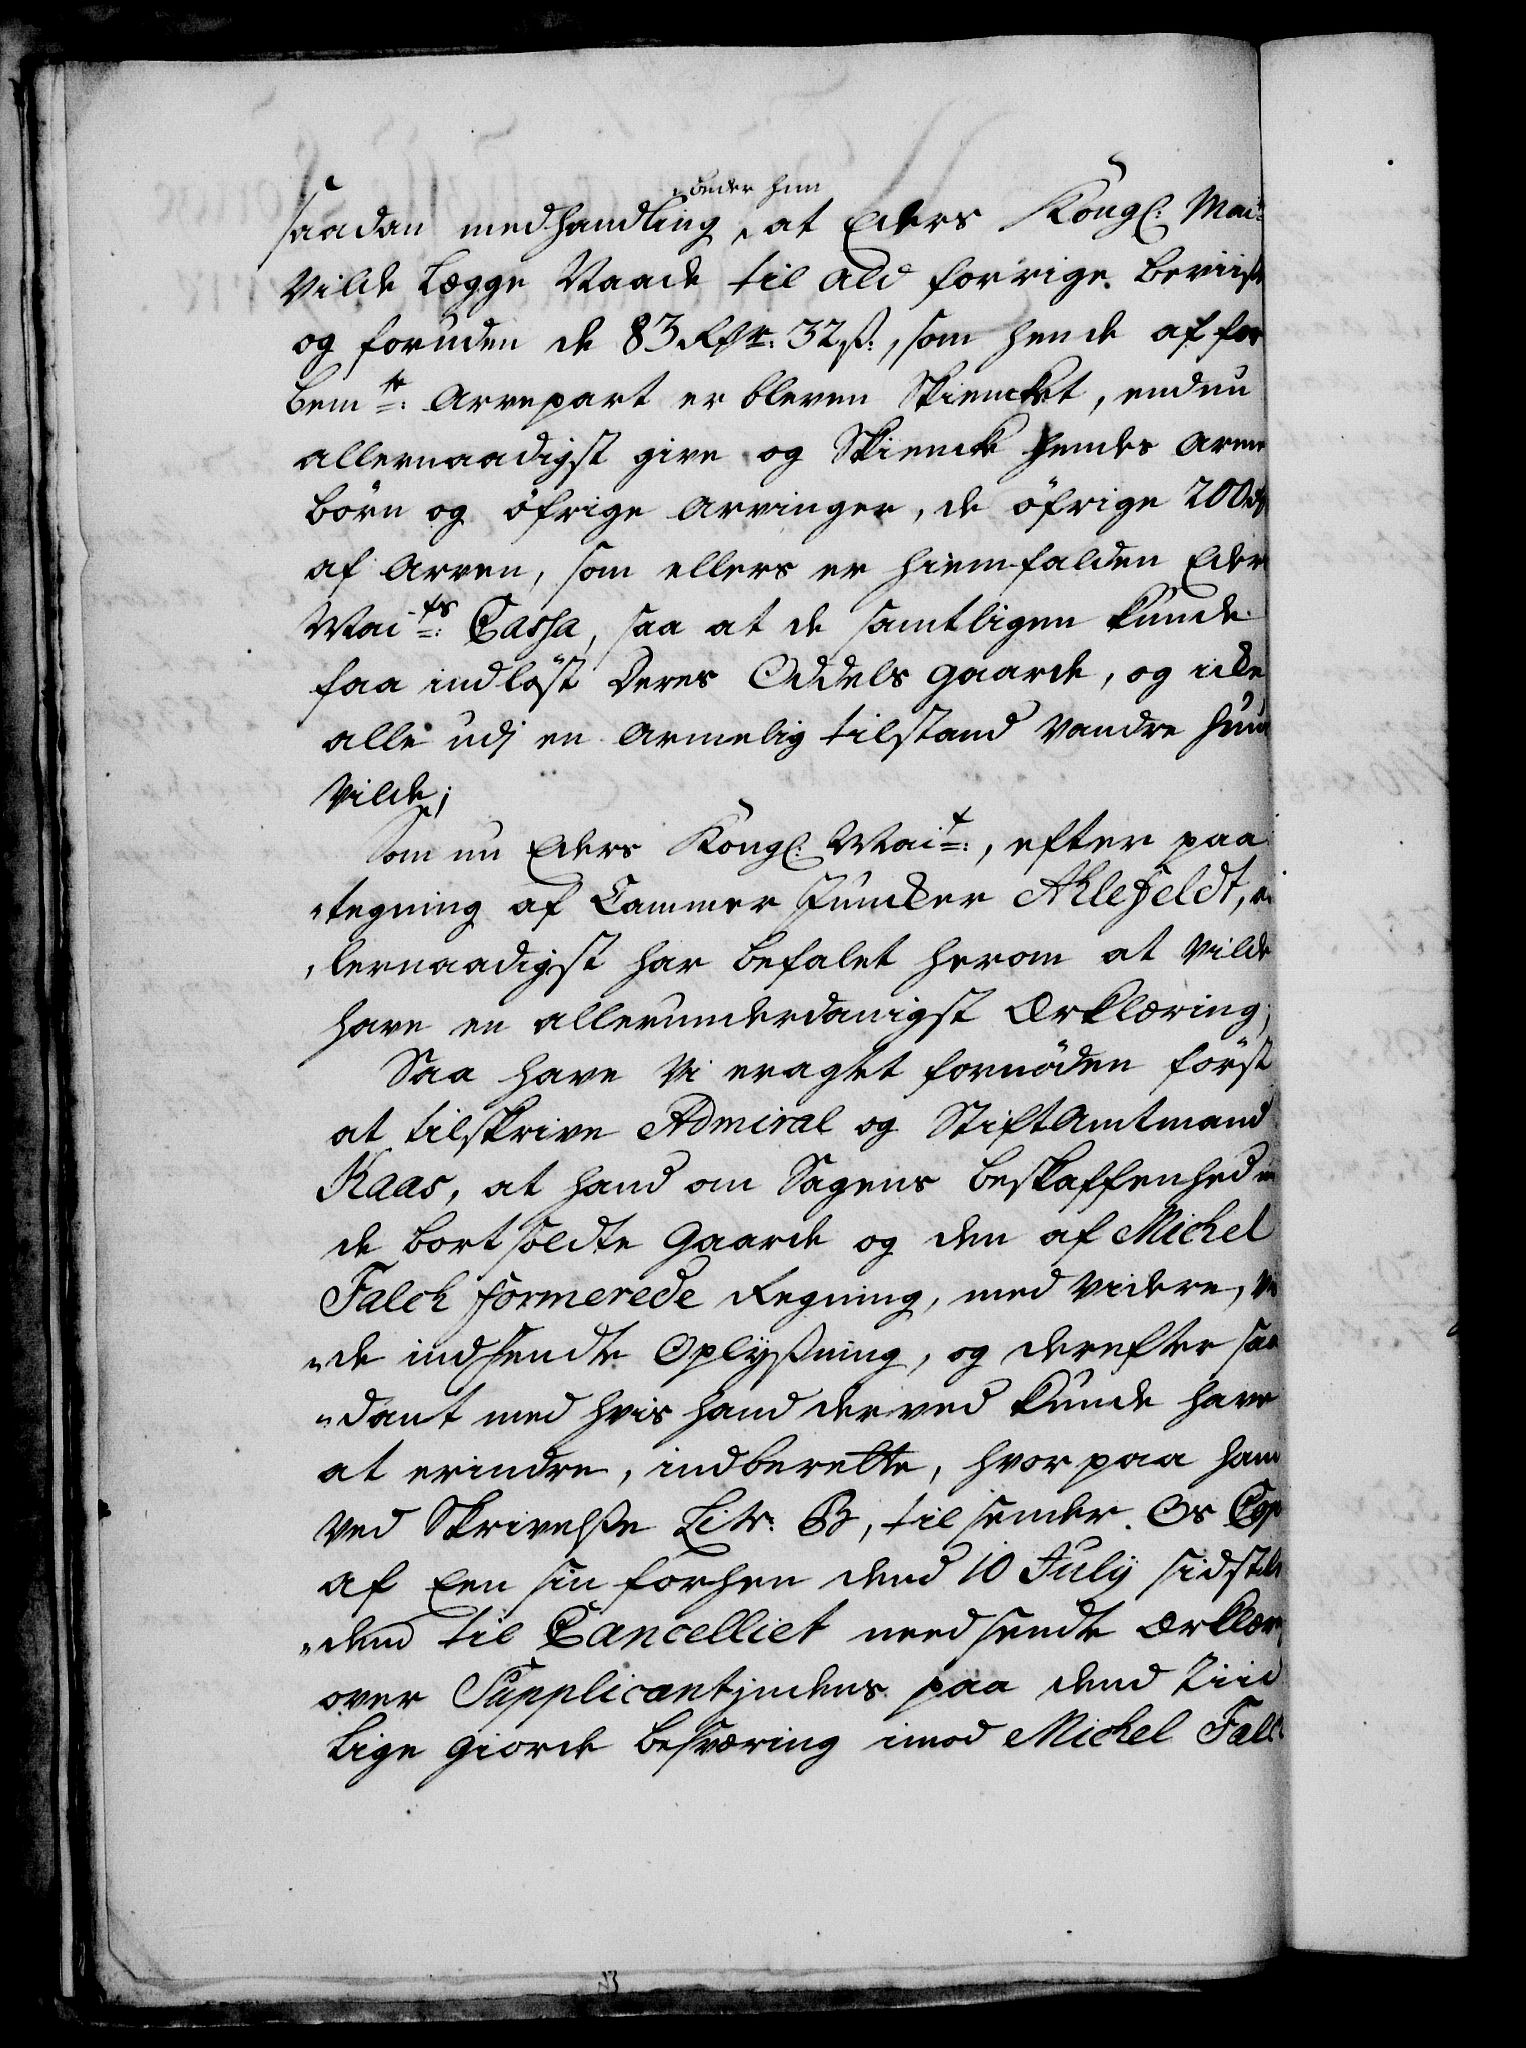 beder hun
saadan medhandling, at Eders Kongl: Mai:
Vilde Lægge Naade til ald forrige beviist
og foruden de 83 Rdr: 32 ß:, som hende af for
bem:te Arvepart er bleven Skiencket, endnu
allernaadigst give og Skiencke hendes arme
börn og öfrige Arvinger, de öfrige 200 rd
af Arven, som ellers er hiemfalden Eder
Mai:ts Cassa, saa at de samtligen kunde
faa indlöst Deres Oddels gaarde, og icke
alle udj en armelig tilstand vandre huus
Vilde;
Som nu Eders Kongl: Mai:t, efter paa
"tegning af Cammer Juncker Ahlefeldt,
"lernaadigst har befalet herom at vilde
have en allerunderdanigst Ærklæring;
Saa have Vi eragtet fornöden först
at tilskrive Admiral og Stiftamtmand
Kaas, at hand om Sagens beskaffenhed
de bortsoldte Gaarde og den af Michel
Falck formerede Regning, med videre, Vi
"de indhendte Oplysßning, og derefter saa
"dant med hvis hand derved kunde have
at erindre, indberette, hvorpaa hand
ved Skrivelse Litr: B, tilsender Os Cop
af Een sin forhen dend 10 July sidstle
"den til Cancelliet nedsendte Ærklær
over Supplicantindens paa dend tiid
lige giorde besværing imod Michel Falc